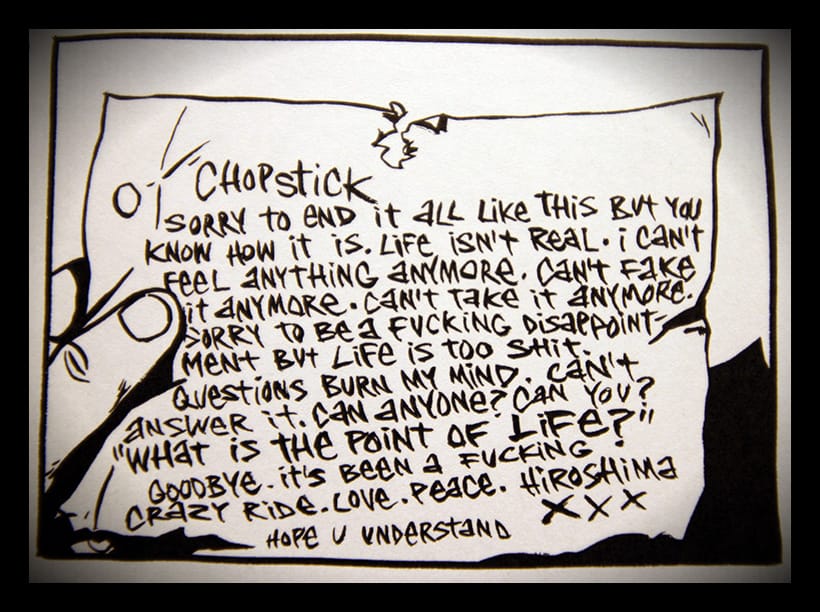 CHOPSTICK
SORRY TO END it ALL LiKE THiS BUT YOU
KNOW HOW iT iS. LiFE iSN'T REAL. i CAN'T
FEEL ANYTHiNG ANYMORE. CAN'T FAKE
it ANYMORE. CAN'T TAKE iT ANYMORE.
SORRY TO BE A FUCKiNG DiSAPPOiNT-
MENT BUT LiFE iS TOO SHiT.
QUESTiONS BURN MY MiND. CAN'T
ANSWER iT. CAN ANYONE? CAN YOU?
"WHAT iS THE POiNT OF LiFE?"
GOODBYE. iT'S BEEN A FUCKiNG
CRAZY RiDE. LOVE. PEACE. HiROSHiMA
XXX
HOPE U UNDERSTAND